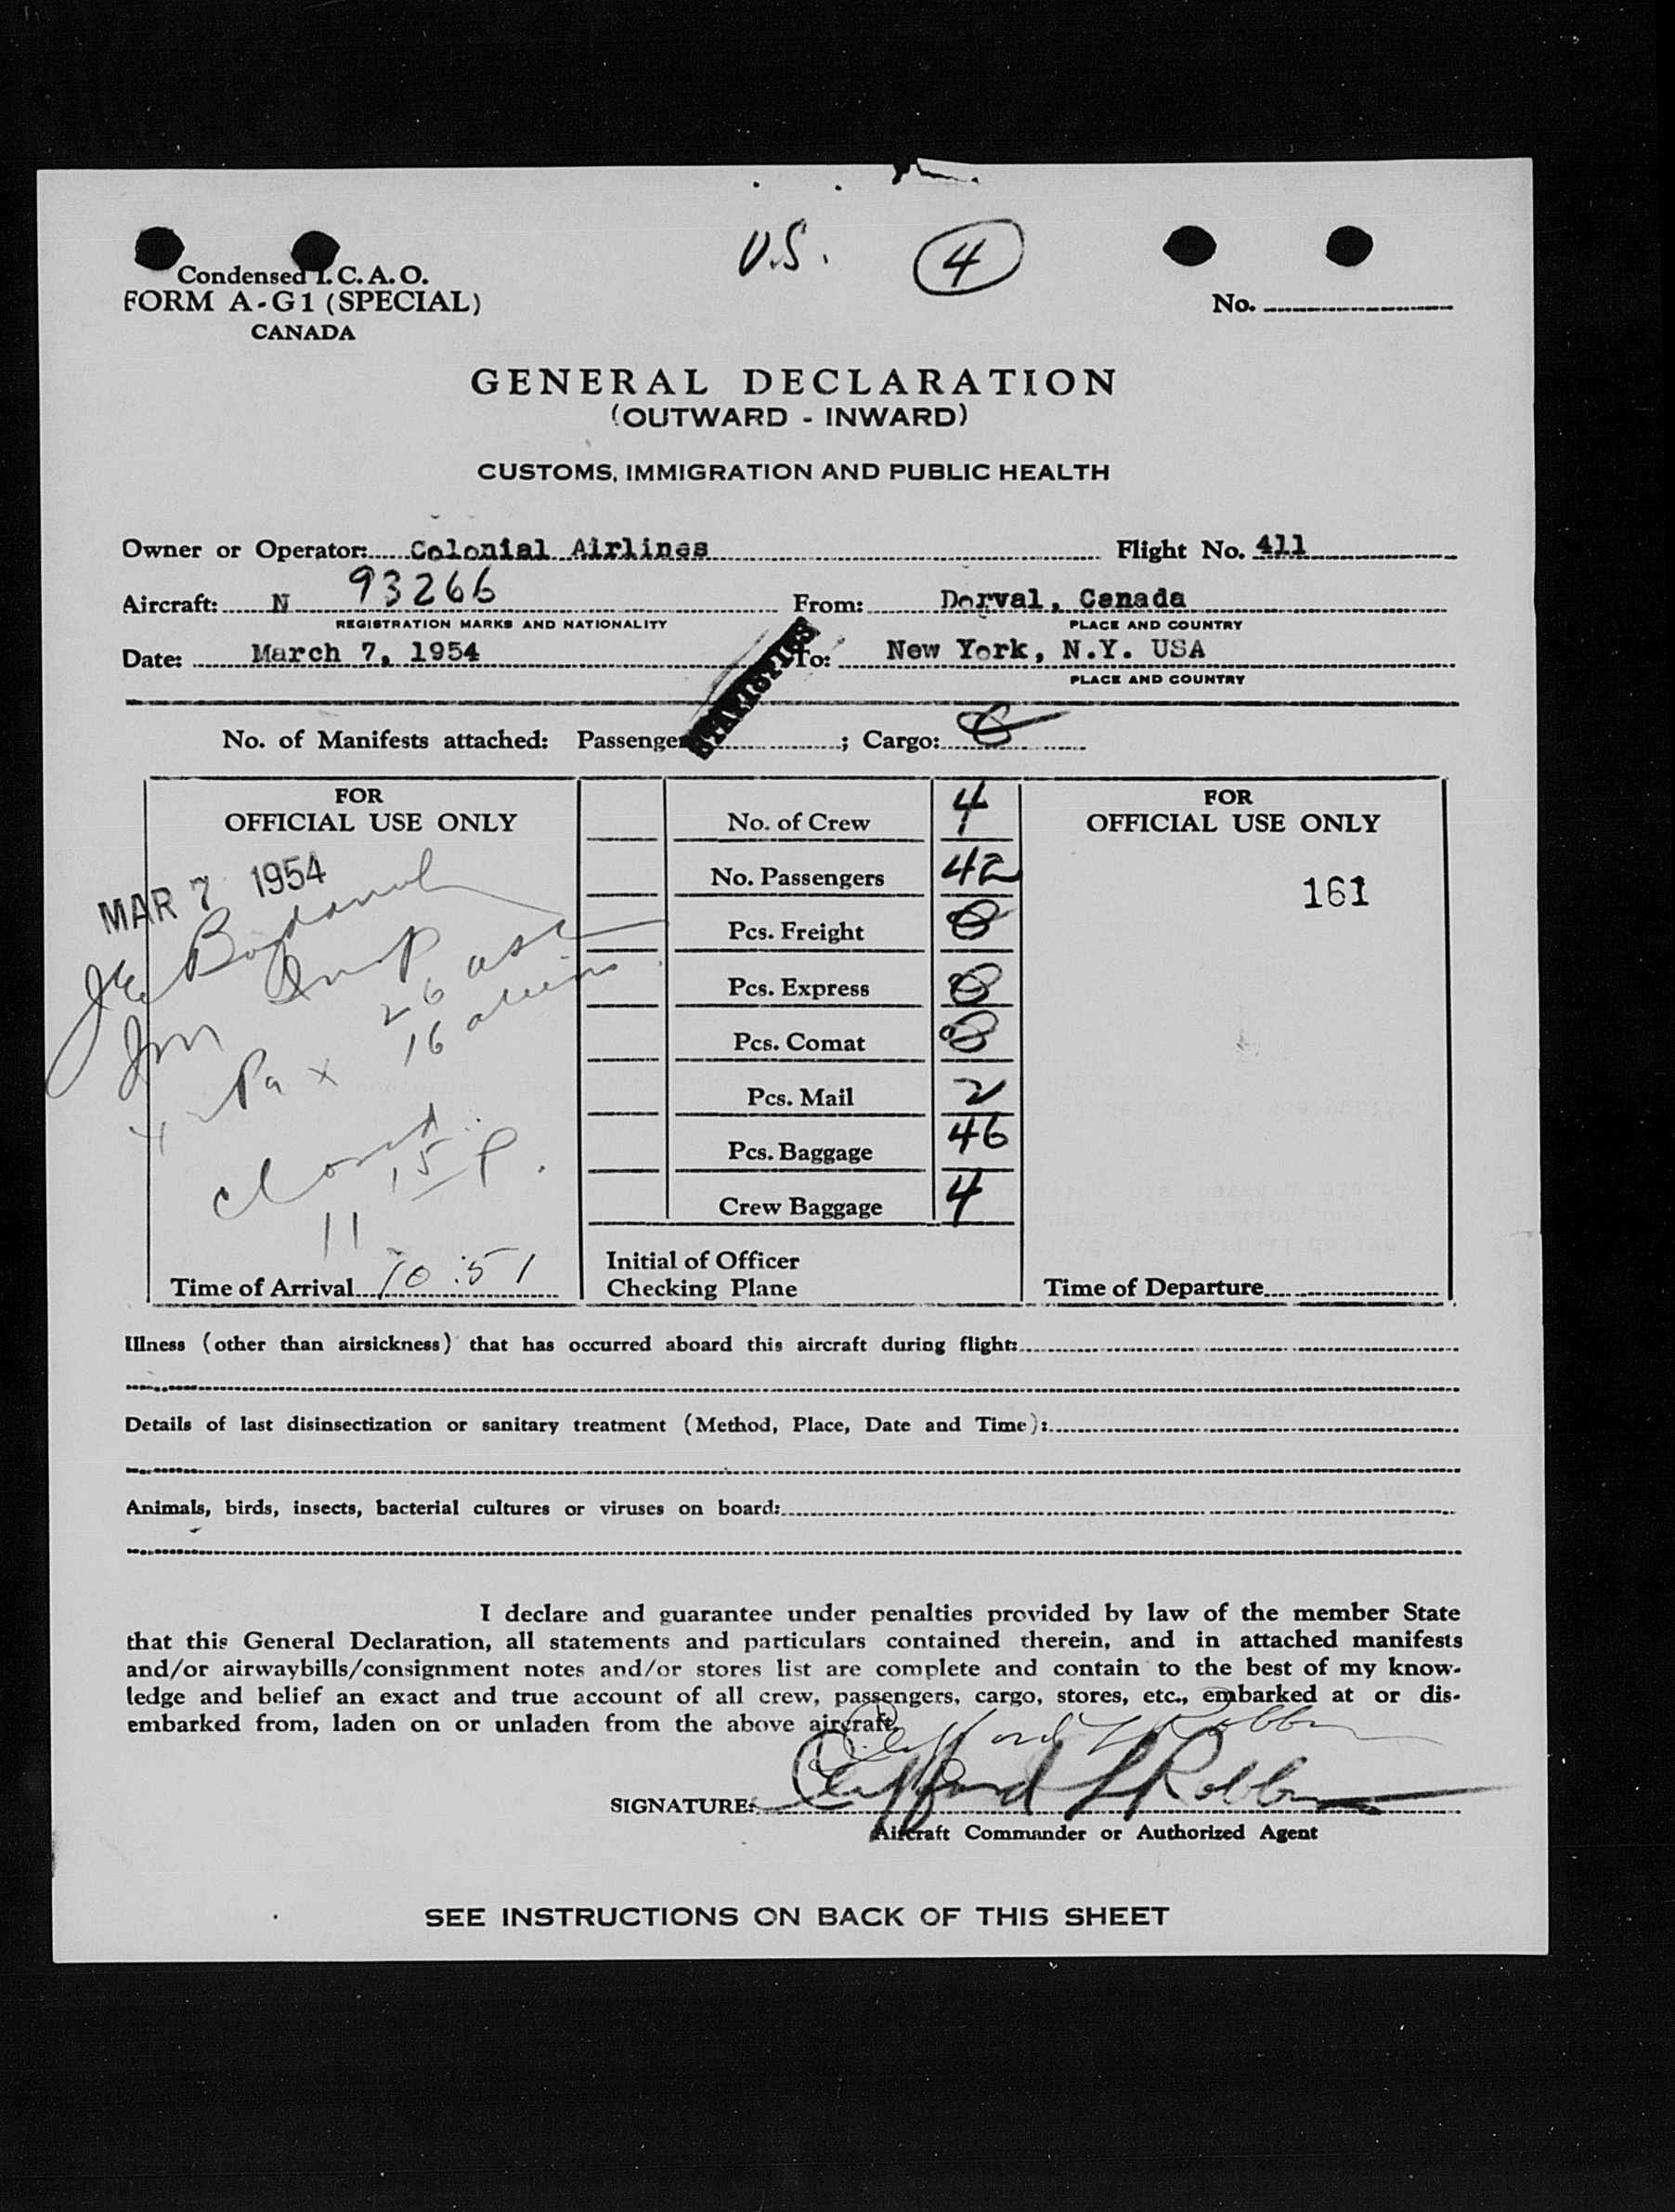 U.S. 4
Condensed I.C.A.O.
FORM A-G1 (SPECIAL)
CANADA
No.
GENERAL DECLARATION
(OUTWARD - INWARD)
CUSTOMS, IMMIGRATION AND PUBLIC HEALTH
Owner or Operator: Colonial Airlines Flight No. 411
Aircraft: N 93266 From: Dorval, Canada
REGISTRATION MARKS AND NATIONALITY PLACE AND COUNTRY
Date: March 7, 1954 To: New York, N.Y. USA
PLACE AND COUNTRY
STATISTICS
No. of Manifests attached: Passenger ; Cargo:
FOR
OFFICIAL USE ONLY
MAR 7 1954
Insp
26 usc
16 aliens
Pax
closed
11 15 P.
Time of Arrival 10:51
No. of Crew 4
No. Passengers 42
Pcs. Freight 0
Pcs. Express 0
Pcs. Comat 0
Pcs. Mail 2
Pcs. Baggage 46
Crew Baggage 4
Initial of Officer
Checking Plane
FOR
OFFICIAL USE ONLY
161
Time of Departure
Illness (other than airsickness) that has occurred aboard this aircraft during flight:
Details of last disinsectization or sanitary treatment (Method, Place, Date and Time):
Animals, birds, insects, bacterial cultures or viruses on board:
I declare and guarantee under penalties provided by law of the member State
that this General Declaration, all statements and particulars contained therein, and in attached manifests
and/or airwaybills/consignment notes and/or stores list are complete and contain to the best of my know-
ledge and belief an exact and true account of all crew, passengers, cargo, stores, etc., embarked at or dis-
embarked from, laden on or unladen from the above aircraft.
Clifford L Robbins
SIGNATURE: Clifford L Robbins
Aircraft Commander or Authorized Agent
SEE INSTRUCTIONS ON BACK OF THIS SHEET